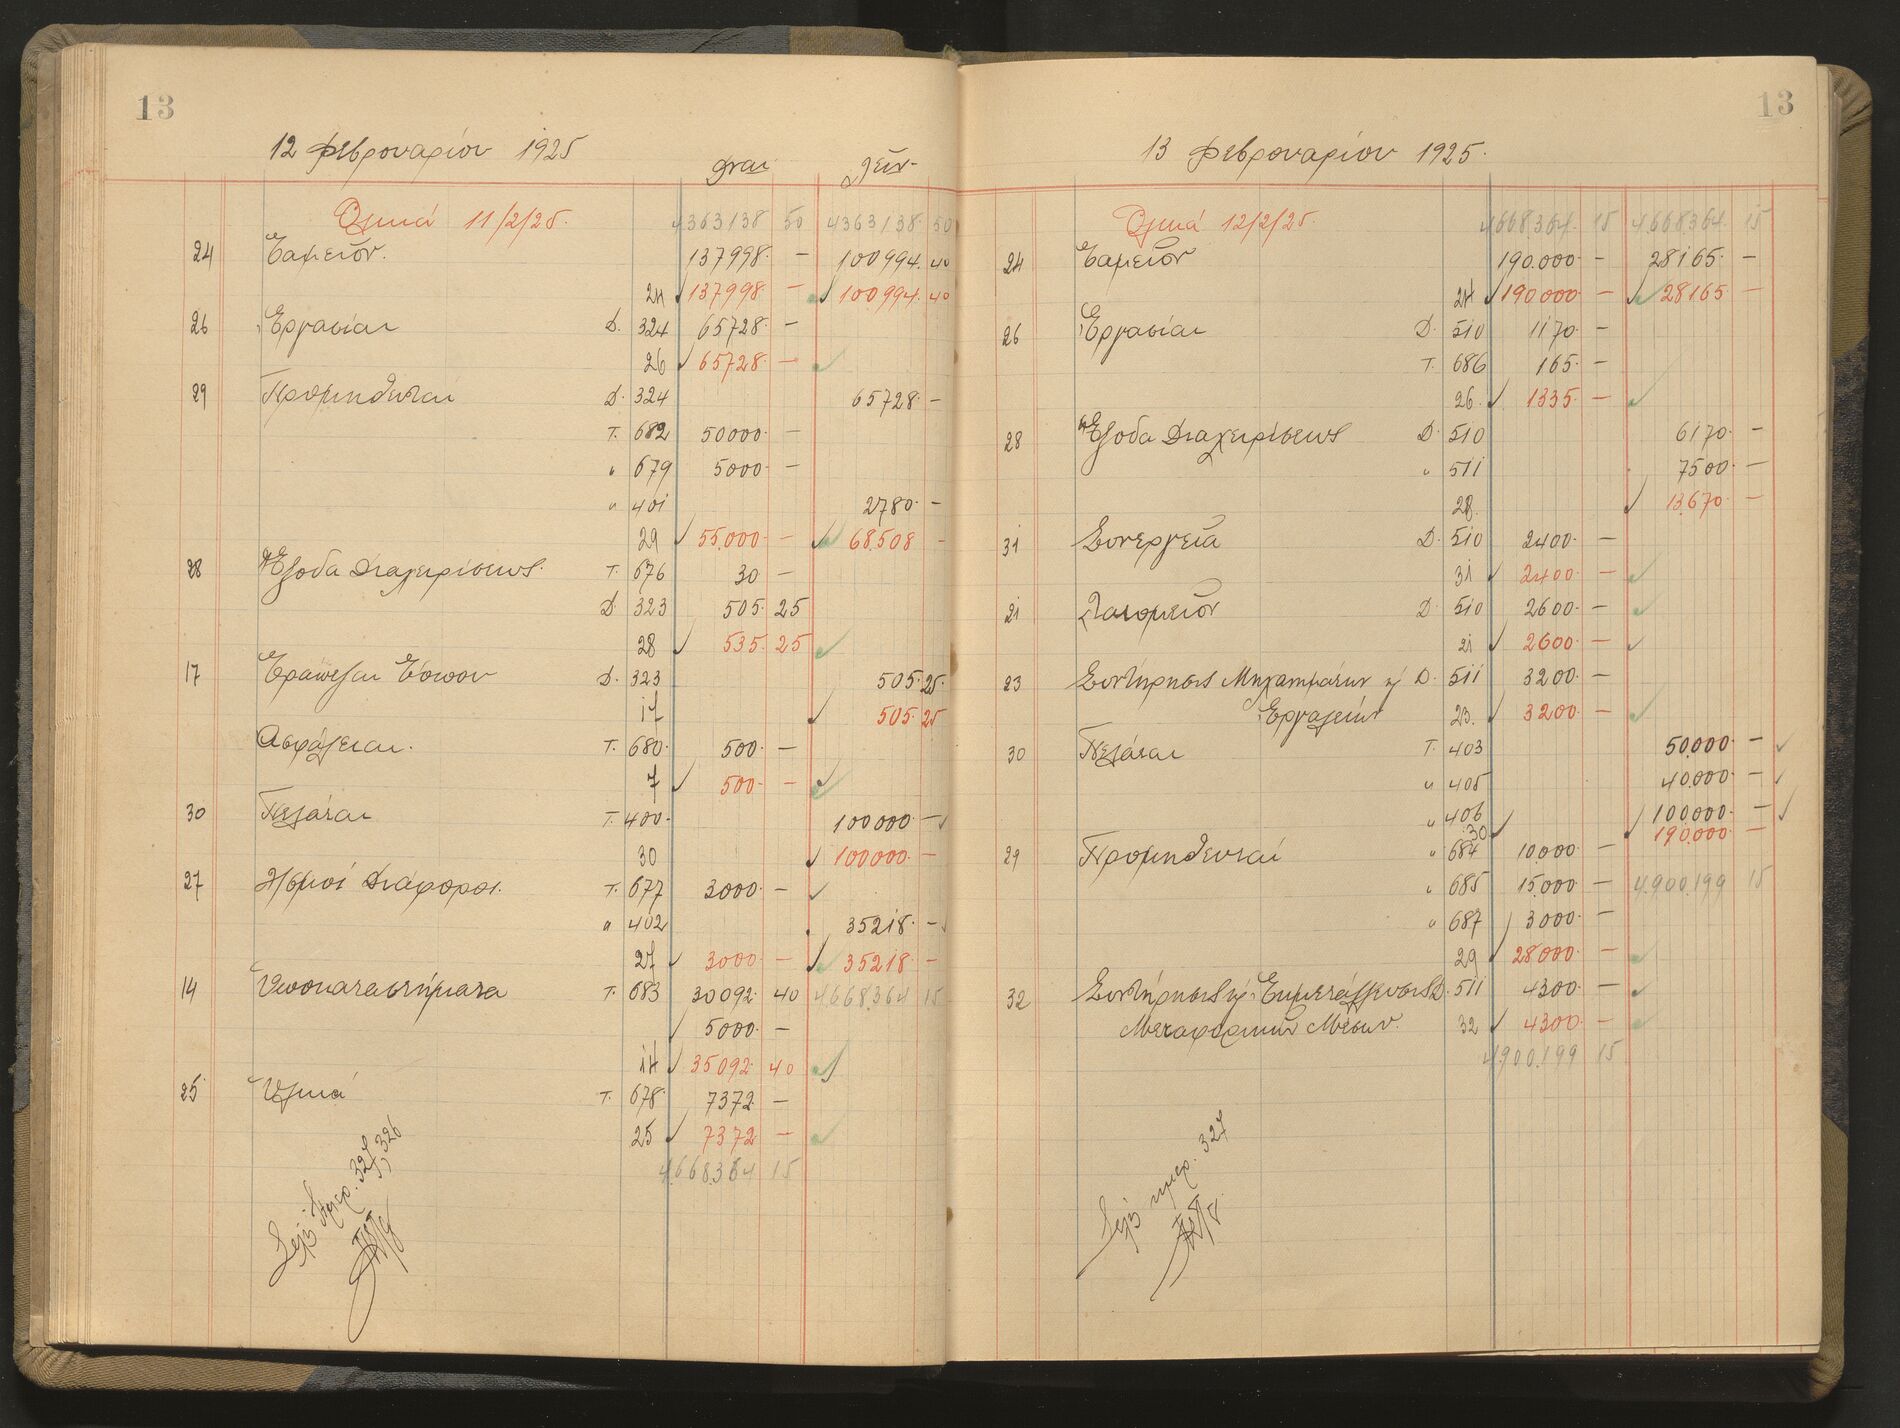 13
12 Φεβρουαρίου 1925
Δναι Λειν
Ολικά 11/2/25. 4363138 50 4363138. 50
24 Ταμείον. 137998. — 100994. 40
24 137998 — 100994. 40
26 Εργασίαι Δ. 324 65728. —
26 65728. —
29 Προμηθευταί Δ. 324 65728. —
Τ. 682 50000. —
" 679 5000. —
" 401 2780. —
29 55.000. — 68.508 —
28 Έξοδα Διαχειρίσεως. Τ. 676 30 —
Δ. 323 505. 25
28 535. 25
17 Τράπεζαι Δ. 323 505. 25.
17 505. 25
Ασφάλειαι. Τ. 680. 500. —
7 500. —
30 Πελάται Τ. 400. 100000. —
30 100000. —
27 Διάφοροι. Τ. 677 3000. —
" 402 35218. —
27 3000. — 35218. —
14 Υποκαταστήματα Τ. 683 30092. 40 4668364 15
5000. —
14 35092. 40
25. Υλικά Τ. 678. 7372. —
25 7372 —
4.668.364 15
ημερ. 327, 326
13
13 Φεβρουαρίου 1925.
Ολικά 12/2/25. 4.668.364. 15 4.668.364. 15
24 Ταμείον 190.000. — 28165. —
24 190000. — 28165 —
26 Εργασίαι Δ. 510 1170. —
Τ. 686 165. —
26. 1335. —
28 Έξοδα Διαχειρίσεως Δ. 510 6170. —
" 511 7500. —
28. 13.670. —
31 Συνεργεία Δ. 510 2400. —
31 2400. —
21 Λατομείον Δ. 510 2600. —
21 2600. —
23 Συντήρησις Μηχανημάτων κ̀ Δ. 511 3200. —
Εργαλείων 23. 3200. —
30 Πελάται Τ. 403 50.000. —
" 405 40.000. —
" 406 100000. —
30 190.000. —
29 Προμηθευταί " 684 10.000. —
" 685 15.000. — 4.900.199 15
" 687 3000. —
29 28000. —
32 Συντήρησις κ̀ Εκμετάλλευσις Δ. 511 4300. —
Μεταφορικών Μέσων. 32 4300. —
4.900.199 15
ημερ. 327